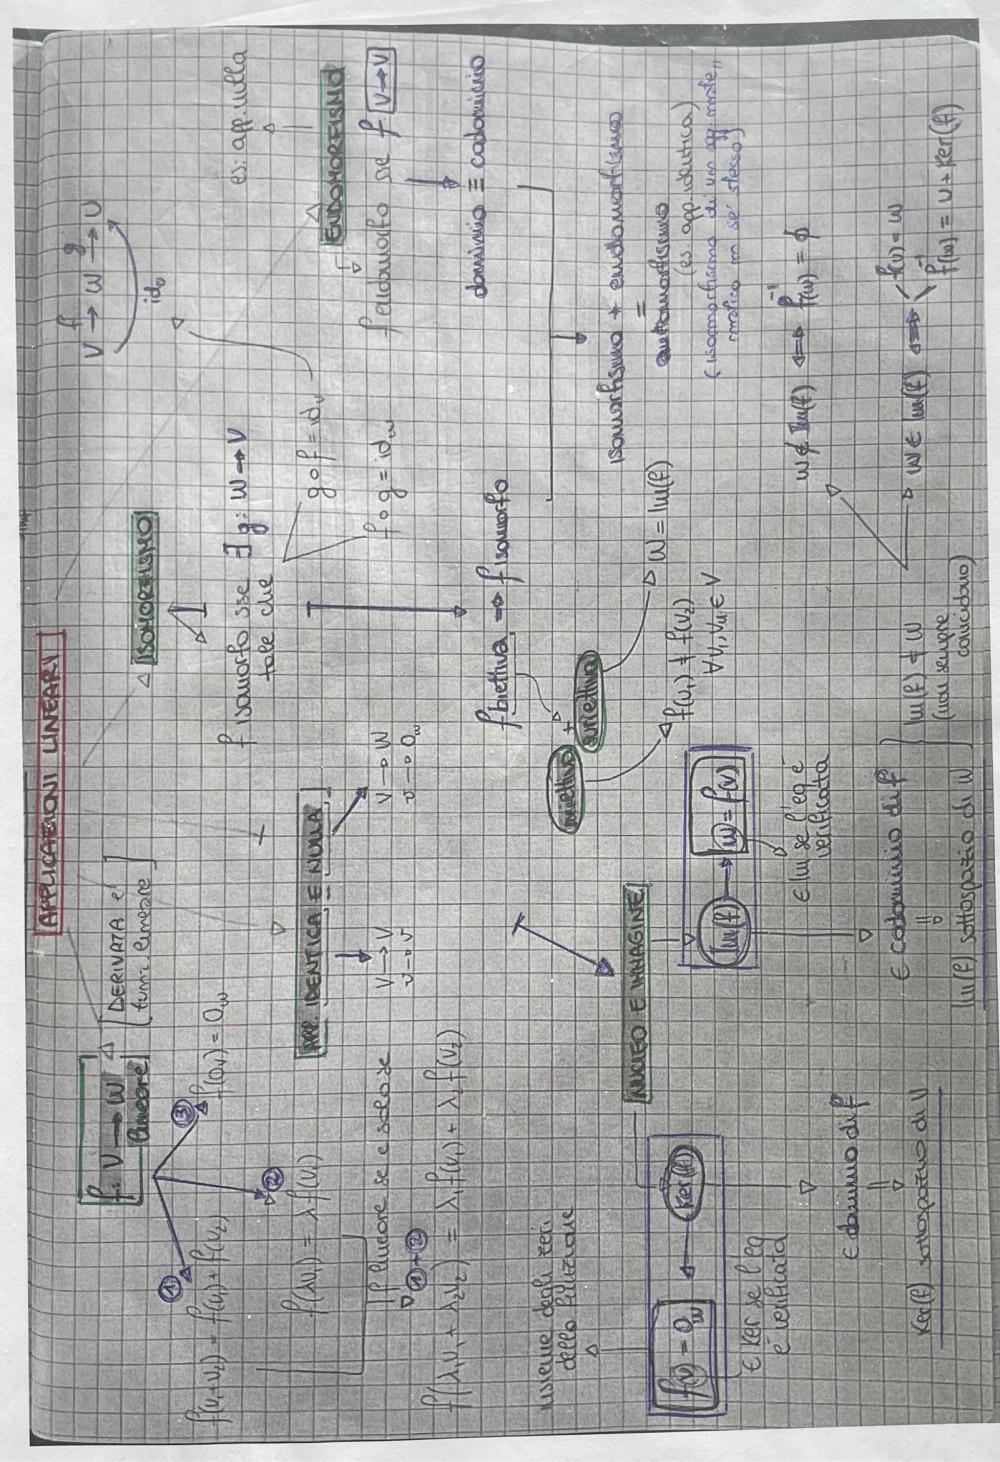 APPLICAZIONI LINEARI
f: V → W
lineare
DERIVATA è
funz. lineare
①
②
③
f(v₁+v₂) = f(v₁) + f(v₂)
f(λv₁) = λ f(v₁)
f(0ᵥ) = 0w
f lineare se e solo se
① + ②
f(λ₁v₁ + λ₂v₂) = λ₁f(v₁) + λ₂f(v₂)
APP. IDENTICA E NULLA
V → V
v → v
V → W
v → 0w
ISOMORFISMO
f isomorfo sse ∃ g: W → V
tale che
g ∘ f = idᵥ
f ∘ g = idw
V →f W →g V
idᵥ
f biettiva → f isomorfo
iniettiva + suriettiva
f(v₁) ≠ f(v₂)
W = Im(f)
ENDOMORFISMO
es: app. nulla
f endomorfo se f V → V
dominio ≡ codominio
isomorfismo + endomorfismo
=
automorfismo
(es. app. identica)
(isomorfismo di un
in se stesso)
NUCLEO E IMMAGINE
insieme degli zeri
della funzione
f(v) = 0w ← Ker(f)
∈ Ker se l'eq
è verificata
∈ dominio di f
Ker(f) sottospazio di V
Im(f) → w = f(v)
∈ Im se l'eq è
verificata
∈ codominio di f
Im(f) sottospazio di W
Im(f) ≠ W
(non sempre
coincidono)
w ∉ Im(f) ⟺ f⁻¹(w) = ∅
w ∈ Im(f) ⟺ f(v) = w
f⁻¹(w) = v + Ker(f)